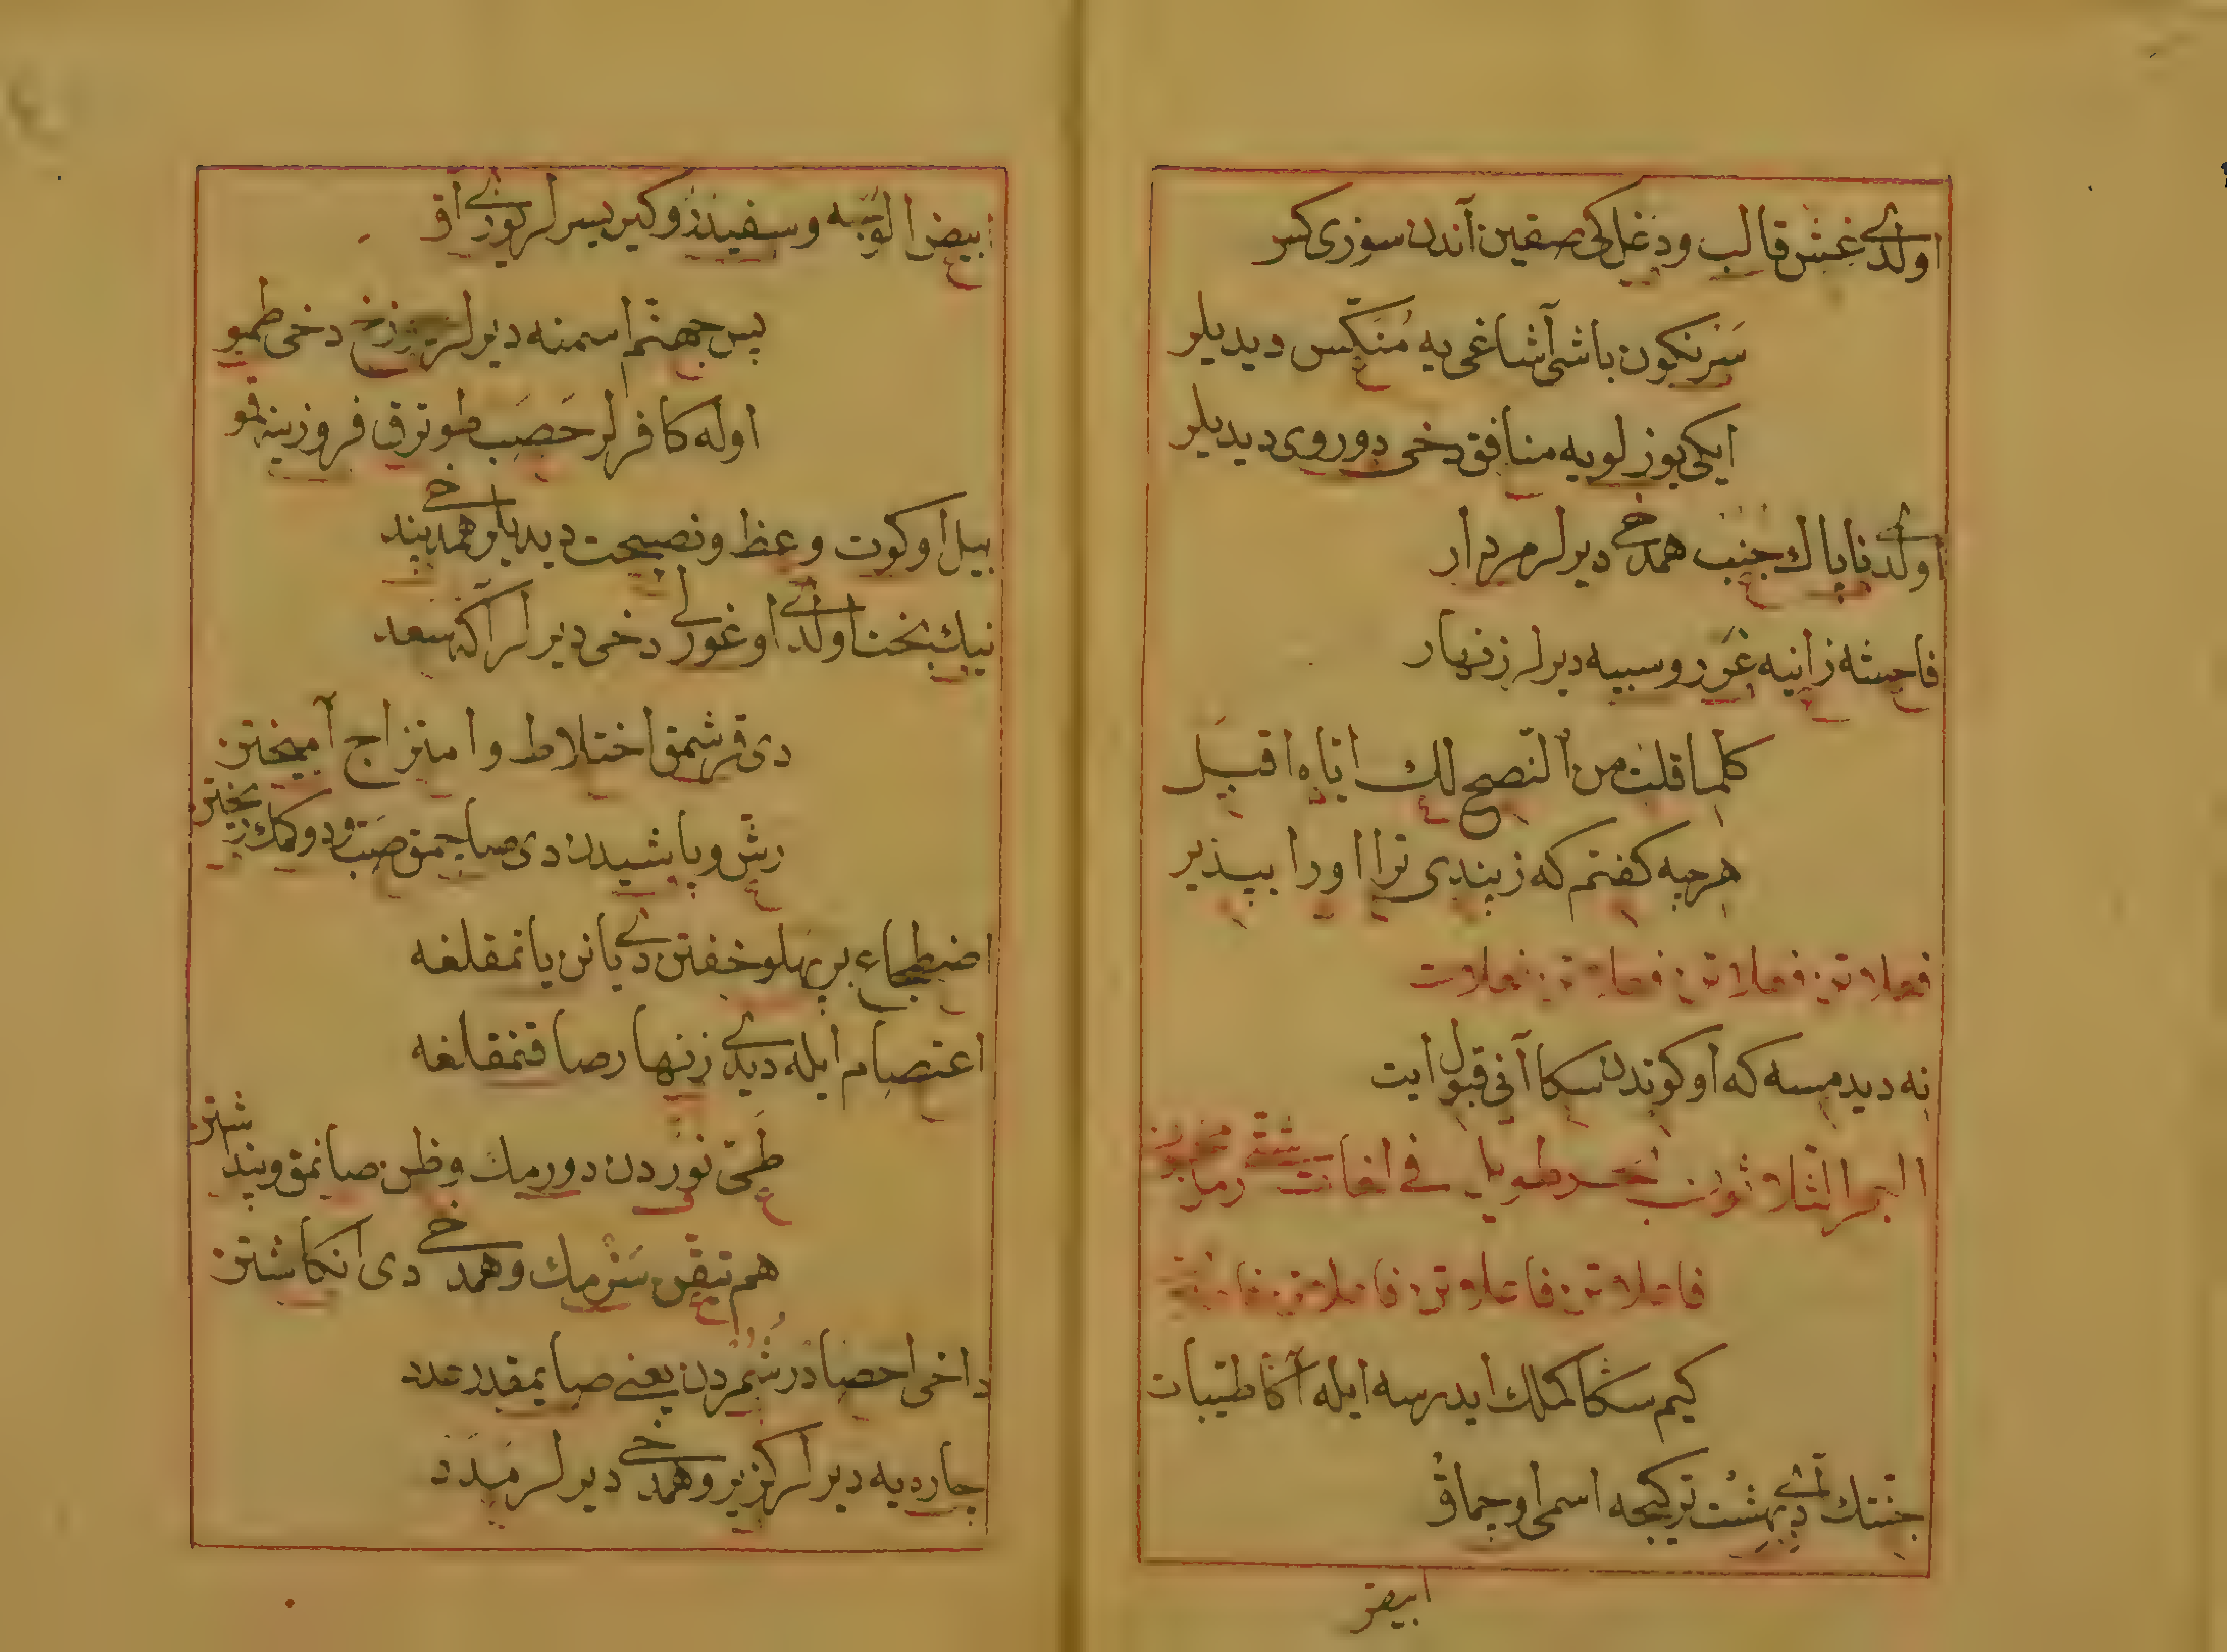 اولدی غش قالب ودغل کی صقین آندن سوزی کس
سرنکون باشی آشاغی یه منکس دیدیلر
ایکی یوزلویه منافق دخی دوروی دیدیلر
اولدی ناپاك جنب همدخی دیرلر مردار
فاحشه زانیه غر روسپیه دیرلر زنهار
کلما قلت من النصح لك اياه اقبل
هرچه کفتم که ز پندی ترا اورا بپذیر
فعلاتن فعلاتن فعلاتن فعلات
نه دیدمسه که اوکوتدن سکا آنی قبول ایت
البحر الثلاثون بحر طویل فی لغات شتی
فاعلاتن فاعلاتن فاعلاتن
کیم سکا کملك ایدرسه ایله آکا طیبات
جنتك بهشت ترکیجه اسمی اوچماق
ابیض
ابیض الوجه وسفیدرو کیریسرلر کوزی آق
پس جهنم اسمنه دیرلر دوزخ دخی طمو
اوله کافرلر حصب طوترق فروزینه تمو
بیل اوکوت وعظ ونصیحت دیدیلر همدخی پند
نیك بخت اولدی اوغورلی دخی دیرلر اکه سعد
دی قرشمق اختلاط وامتزاج آمیختن
رش وپاشیدن دی صاچمق صب ودوکمك ریختن
اضطجاع بر پهلو خفتن دی یانن یاتمقلغه
اعتصام ایله دیدی زنهار صاقنمقلغه
طی نوردن دورمك وظن صانمق وپنداشتن
هم تیقن سزمك وهمدخی دی انکاشتن
داخی احصا در شمردن یعنی صایمقدر عدد
چاره یه دیرلر کزیر وهمدخی دیرلر مدد